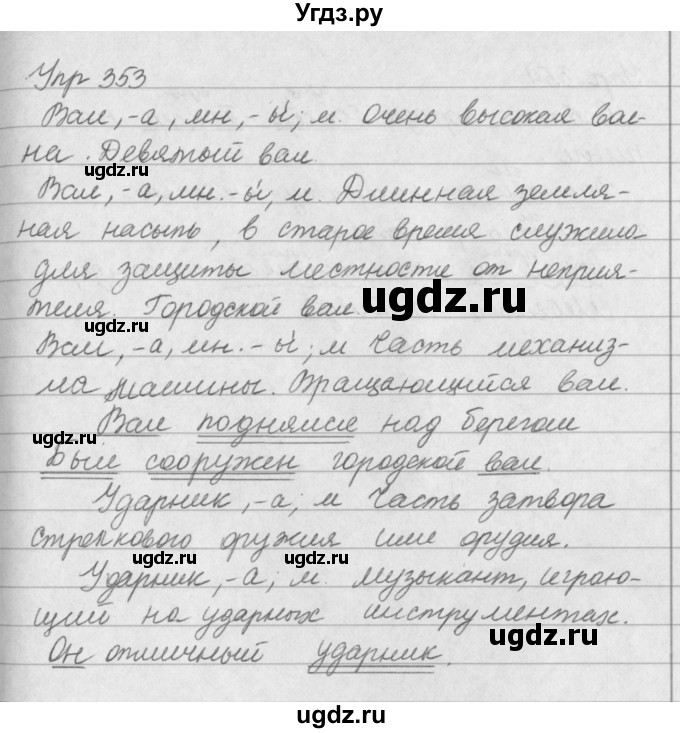 Угдз.ру
Упр 353
Вал, -а, мн, -ы́; м. Очень высокая вол-
на. Девятый вал.
ugdz.ru
Вал, -а, мн. -ы́, м. Длинная земля-
ная насыпь, в старое время служила
для защиты местности от неприя-
ugdz.ru
теля. Городской вал.
ugdz.ru
Вал, -а, мн. -ы́; м Часть механиз-
ма машины. Вращающийся вал.
Вал поднялся над берегом
ugdz.ru
Был сооружен городской вал.
Ударник, -а; м Часть затвора
стрелкового оружия или орудия.
ugdz.ru ugdz.ru
Ударник, -а; м. музыкант, играю-
щий на ударных инструментах.
ugdz.ru
Он отличный ударник.
ugdz.ru